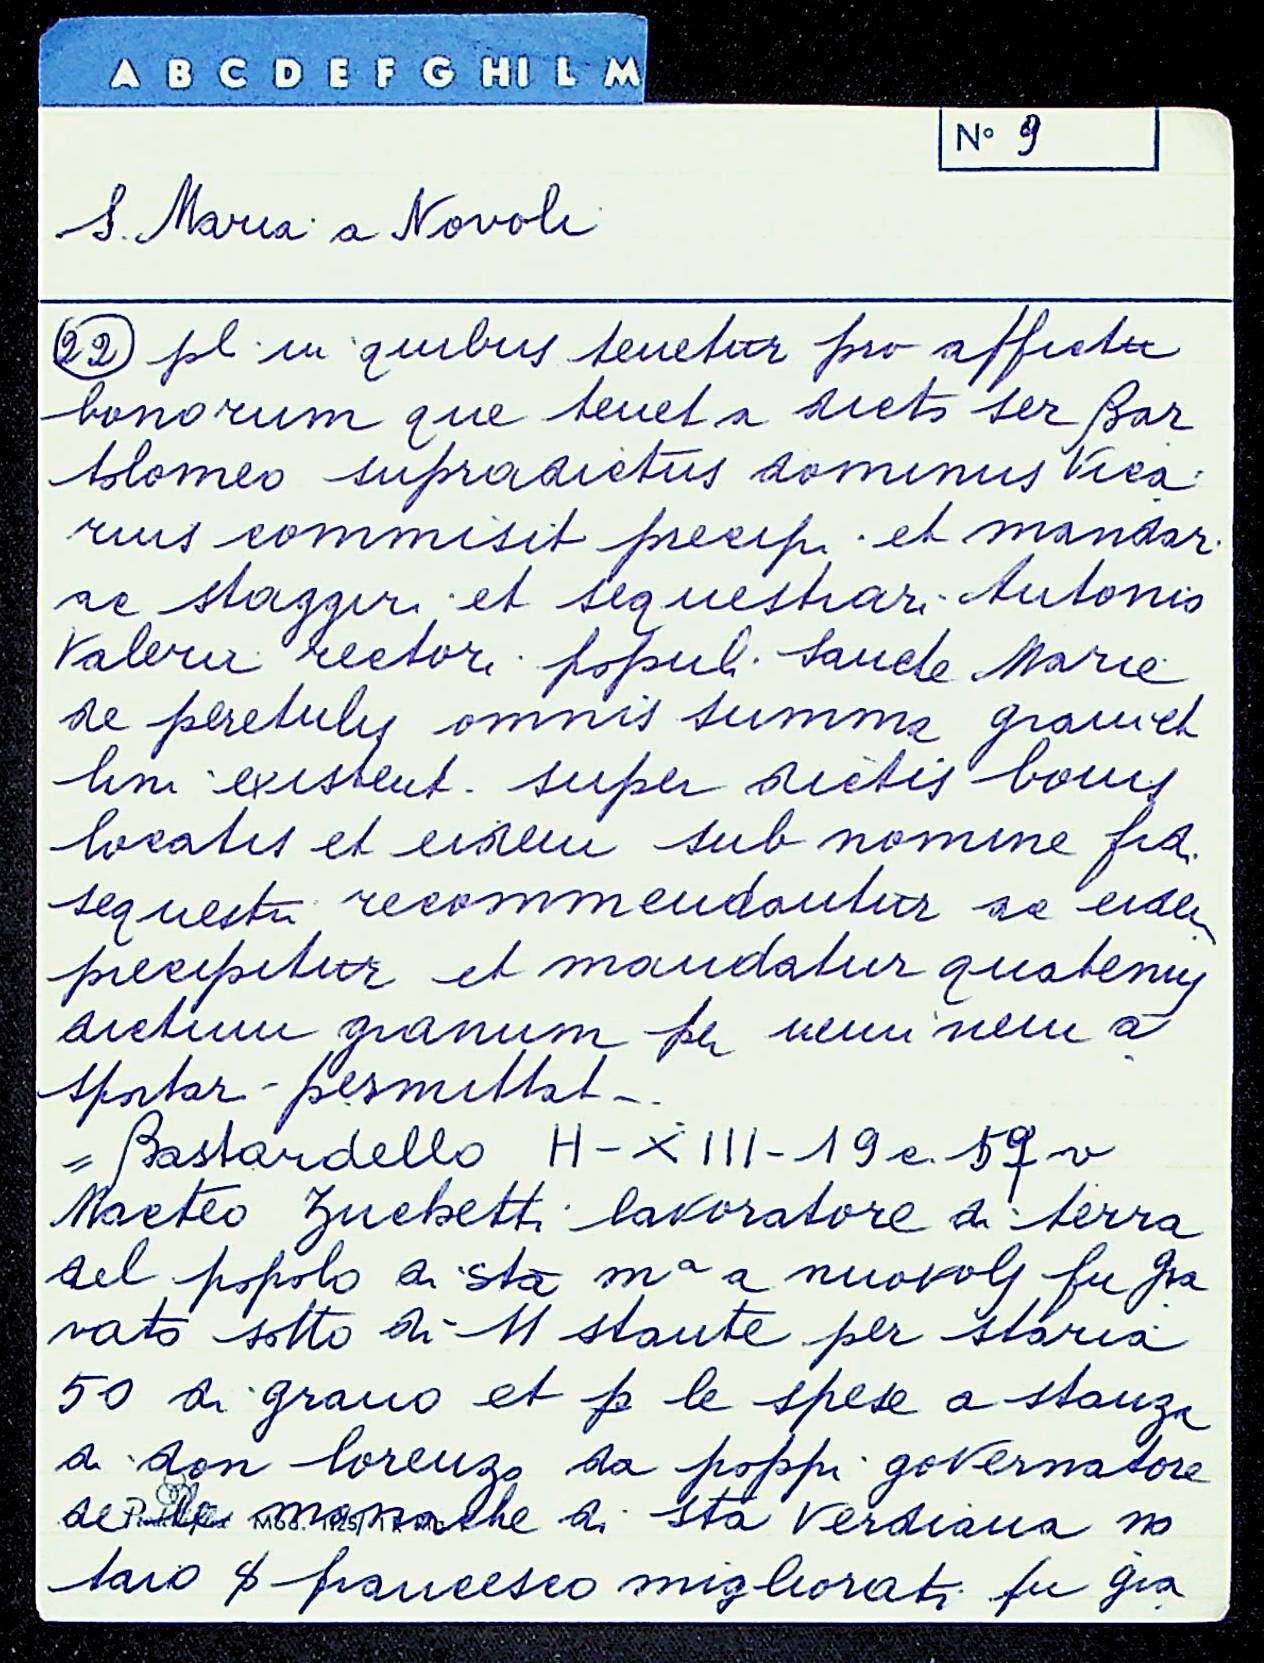 A B C D E F G HI L M
N° 9
S. Maria a Novoli
22 pl. in quibus tenetur pro affictu
bonorum que tenet a dicto ser Bar
tolomeo supradictus dominus Vica
rius commisit precip. et mandar.
ac staggiri et sequestrari Antonio
Valerii rectori populi Sancte Marie
de peretuly omnis summa grani et
lini existent. super dictis bonis
locatis et eidem sub nomine fid.
sequestri recommendantur ac eidem
precipitur et mandatur quatenus
dictum granum per neminem a
sportar. permittat -
= Bastardello H - XIII - 19 c. 59 v
Macteo Zuchetti lavoratore di terra
del popolo di sta mª a nuovoly fu gra
vato sotto di 11 stante per staria
50 di grano et p le spese a stanza
di don lorenzo da poppi governatore
delle monache di sta Verdiana no
taio s francesco migliorati fu gra